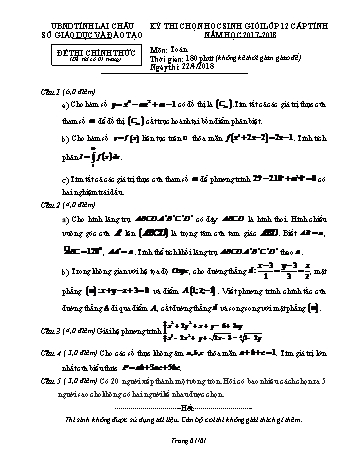 UBND TỈNH LAI CHÂU
SỞ GIÁO DỤC VÀ ĐÀO TẠO
KỲ THI CHỌN HỌC SINH GIỎI LỚP 12 CẤP TỈNH
NĂM HỌC 2017-2018
ĐỀ THI CHÍNH THỨC
(Đề thi có 01 trang)
Môn: Toán
Thời gian: 180 phút (không kể thời gian giao đề)
Ngày thi: 22/4/2018
Câu 1 (6,0 điểm)
a) Cho hàm số có đồ thị là . Tìm tất cả các giá trị thực của
tham số m để đồ thị cắt trục hoành tại bốn điểm phân biệt.
b) Cho hàm số y = f(x) liên tục trên thỏa mãn . Tính tích
phân
c) Tìm tất cả các giá trị thực của tham số m để phương trình có
hai nghiệm trái dấu.
Câu 2 (4,0 điểm)
a) Cho hình lăng trụ ABCD.A'B'C'D' có đáy ABCD là hình thoi. Hình chiếu
vuông góc của A' lên (ABCD) là trọng tâm của tam giác ABD. Biết AB = a,
. Tính thể tích khối lăng trụ ABCD.A'B'C'D' theo a.
b) Trong không gian với hệ tọa độ Oxyz, cho đường thẳng , mặt
phẳng và điểm . Viết phương trình chính tắc của
đường thẳng đi qua điểm A, cắt đường thẳng d và song song với mặt phẳng .
Câu 3 (4,0 điểm) Giải hệ phương trình
Câu 4 (3,0 điểm) Cho các số thực không âm a, b, c thỏa mãn a + b + c = 1. Tìm giá trị lớn
nhất của biểu thức P = ab + 5ac + 5bc.
Câu 5 (3,0 điểm) Có 20 người xếp thành một vòng tròn. Hỏi có bao nhiêu cách chọn ra 5
người sao cho không có hai người kề nhau được chọn.
Hết
Thí sinh không được sử dụng tài liệu. Cán bộ coi thi không giải thích gì thêm.
Trang 01/01